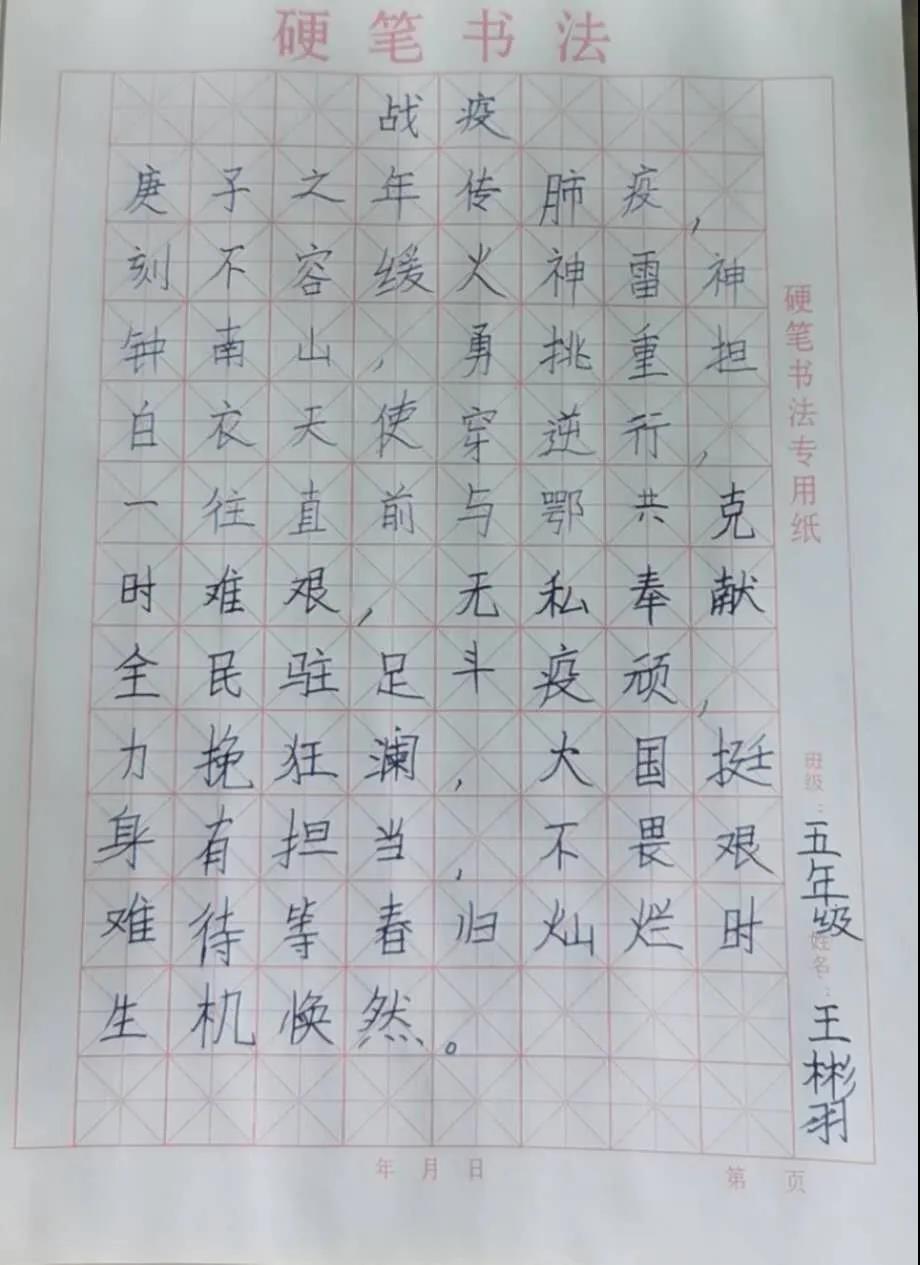 硬笔书法
战疫
庚子之年传肺疫，
刻不容缓火神雷神
钟南山，勇挑重担
白衣天使穿逆行，
一往直前与鄂共克
时难艰，无私奉献
全民驻足斗疫顽，
力挽狂澜，大国挺
身有担当，不畏艰
难待等春归灿烂时
生机焕然。
硬笔书法专用纸
班级：五年级
姓名：王彬羽
年月日
第 页